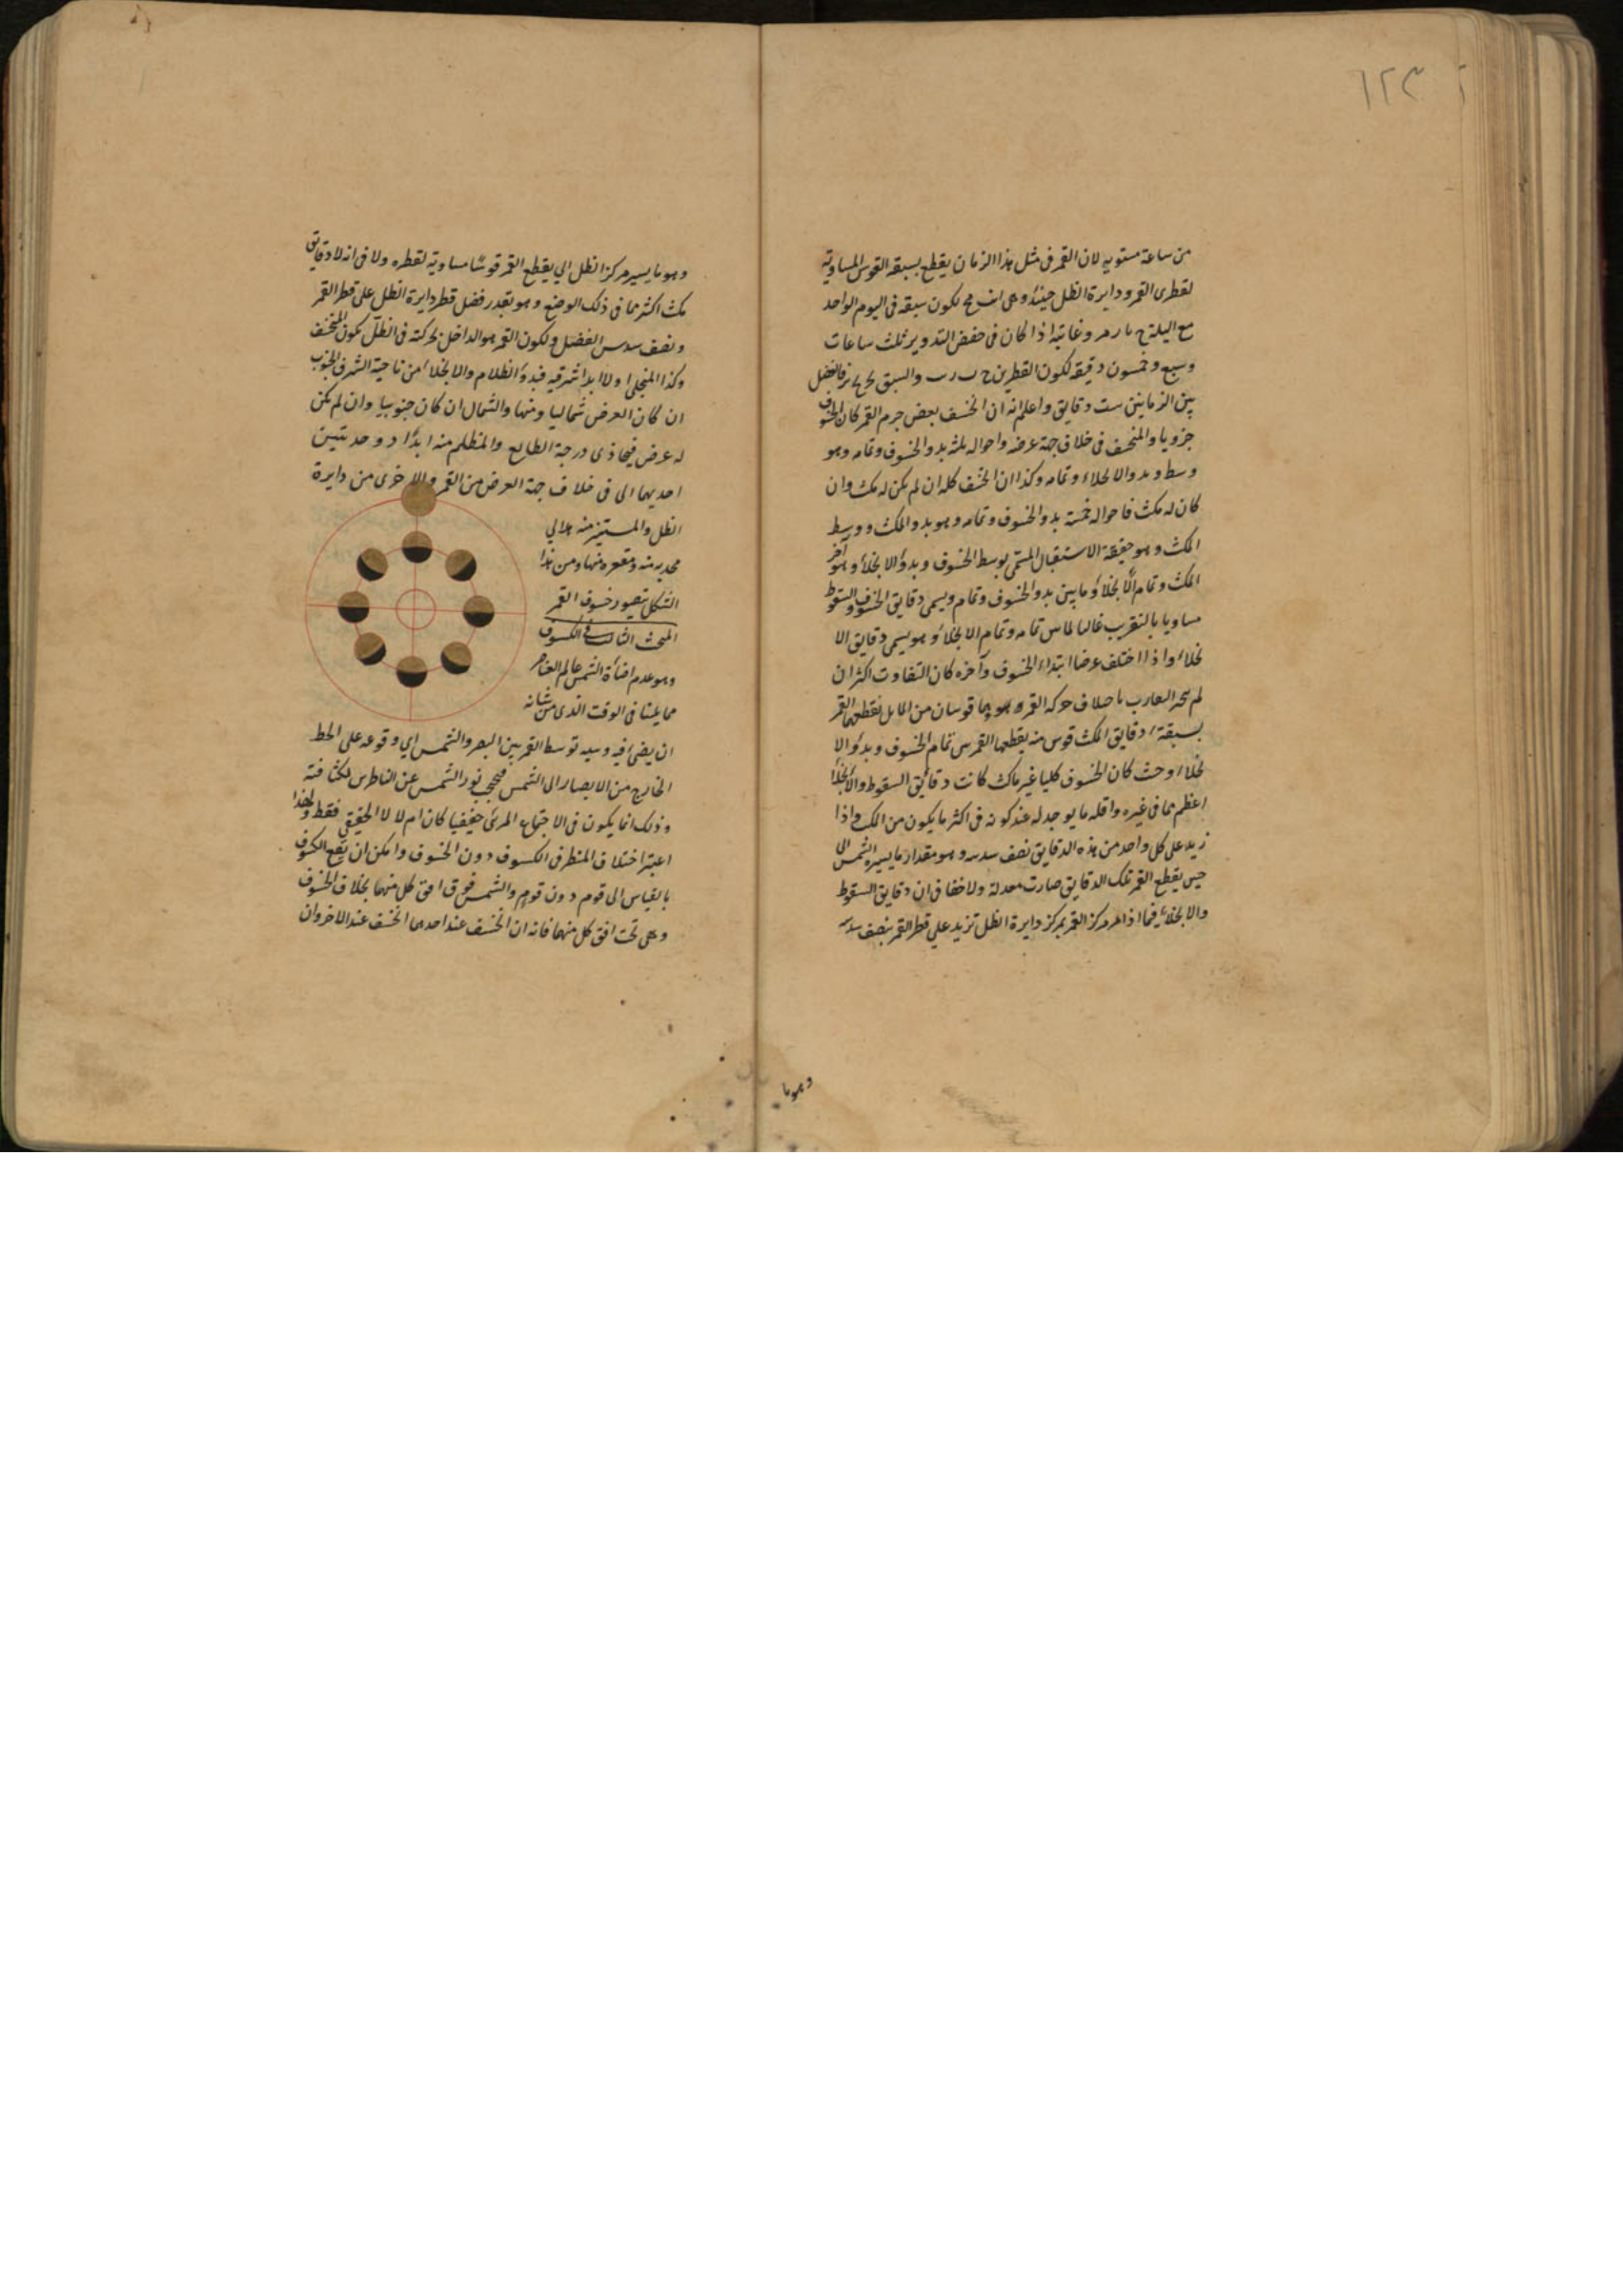 ١٢٣
من ساعة مستويه لان القمر فى مثل هذا الزمان يقطع بسبقه القوس المساويه
لقطرى القمر ودايرة الظل حينئذ وهى لكون سبقه فى اليوم الواحد
مع اليلته وغايته اذا كان فى حضيض التدوير ثلث ساعات
وسبع وخمسون دقيقه لكون القطرين والسبق فالفضل
بين الزمانين ست دقايق واعلم انه ان انخسف بعض جرم القمر كان الخسوف
جزويا والمنخسف فى خلاف جهة عرضه واحواله ثلثه بدو الخسوف وتمامه وهو
وسطه وبدو الانجلاء وتمامه وكذا ان انخسف كله ان لم يكن له مكث وان
كان له مكث فاحواله خمسة بدو الخسوف وتمامه وهو بدو المكث ووسط
المكث وهو حقيقة الاستقبال المسمى بوسط الخسوف وبدؤ الانجلاء وهو آخر
المكث وتمام الانجلاء وما بين بدو الخسوف وتمامه ويسمى دقايق الخسوف والسقوط
مساويا بالتقريب غالبا لما بين تمامه وتمام الانجلاء وهو يسمى دقايق الا
نجلاء واذا اختلف عرضا ابتداء الخسوف وآخره كان التفاوت اكثر ان
لم حركه القمر وهما قوسان من المايل يقطعهما القمر
بسبقه ودقايق المكث قوس منه يقطعها القمر من تمام الخسوف وبدؤ الا
نجلاء وحيث كان الخسوف كليا غير ماكث كانت دقائق السقوط والانجلاء
اعظم مما فى غيره واقله ما يوجد له عند كونه فى اكثر ما يكون من المكث واذا
زيد على كل واحد من هذه الدقايق نصف سدسه وهو مقدار ما يسيره الشمس الى
حين يقطع القمر تلك الدقايق صارت معدلة ولا خفا فى ان دقايق السقوط
والانجلاء فيما اذا مر مركز القمر بمركز دايرة الظل تزيد على قطر القمر بنصف سدسه
وهو ما
وهو ما يسير مركز الظل الى يقطع القمر قوسا مساوية لقطره ولا فى انه لا دقايق
مكث اكثر مما فى ذلك الوضع وهو بقدر فضل قطر دايرة الظل على قطر القمر
ونصف سدس الفضل ولكون القمر هو الداخل بحركته فى الظل يكون المنخسف
وكذا المنجلى اولا ابدا شرقيه فبدؤ الظلام والانجلاء من ناحية الشرق الجنوب
ان كان العرض شماليا ومنها والشمال ان كان جنوبيا وان لم يكن
له عرض فيحاذى درجة الطالع والمظلم منه ابدًا ذو حدبتين
احديهما الى فى خلاف جهة العرض من القمر والاخرى من دايرة
الظل والمستنير منه هلالى
محدبه منه ومقعره منها ومن هذا
الشكل يتصور خسوف القمر
المبحث الثالث فى الكسوف
وهو عدم اضأة الشمس عالم العناصر
مما يلينا فى الوقت الذى من شانه
ان يضئ فيه وسببه توسط القمر بين البصر والشمس اى وقوعه على الخط
الخارج من الابصار الى الشمس فيحجب نور الشمس عن الناظرين لكثافته
وذلك انما يكون فى الاجتماع المرئى حقيقيا كان ام لا لا الحقيقى فقط ولهذا
اعتبر اختلاف المنظر فى الكسوف دون الخسوف وامكن ان يقع الكسوف
بالقياس الى قوم دون قوم والشمس فوق افق كل منهما بخلاف الخسوف
وهى تحت افق كل منهما فانه ان انخسف عند احدهما انخسف عند الاخر وان